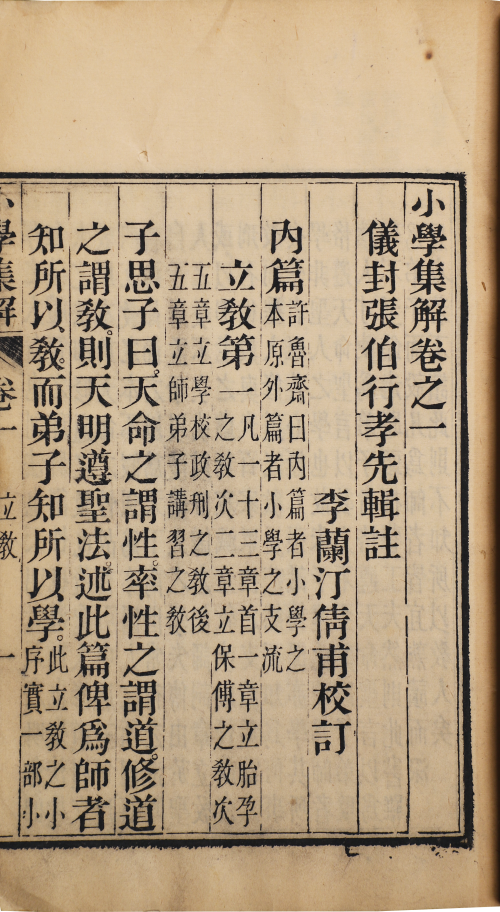 小學集解卷之一
儀封張伯行孝先輯註
李蘭汀倩甫校訂
內篇許魯齋曰內篇者小學之
本原外篇者小學之支流
立敎第一凡一十三章首一章立胎孕
之敎次二章立保傅之敎次
五章立學校政刑之敎後
五章立師弟子講習之敎
子思子曰天命之謂性。率性之謂道。修道
之謂敎。則天明遵聖法。述此篇俾爲師者
知所以敎。而弟子知所以學。此立敎之小
序實一部小
小學集解 卷一 立敎 一